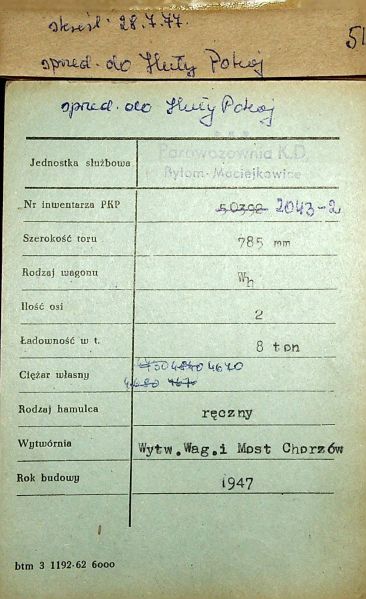 skreśl. 28.7.77.
51
sprzed. do Huty Pokój
sprzed. do Huty Pokój
Jednostka służbowa
Parowozownia K.D.
Bytom-Maciejkowice
Nr inwentarza PKP 50392 2043-2
Szerokość toru 785 mm
Rodzaj wagonu Wh
Ilość osi 2
Ładowność w t. 8 ton
Ciężar własny 4730 4840 4670
4680 4670
Rodzaj hamulca ręczny
Wytwórnia Wytw.Wag.i Most Chorzów
Rok budowy 1947
btm 3 1192-62 6000